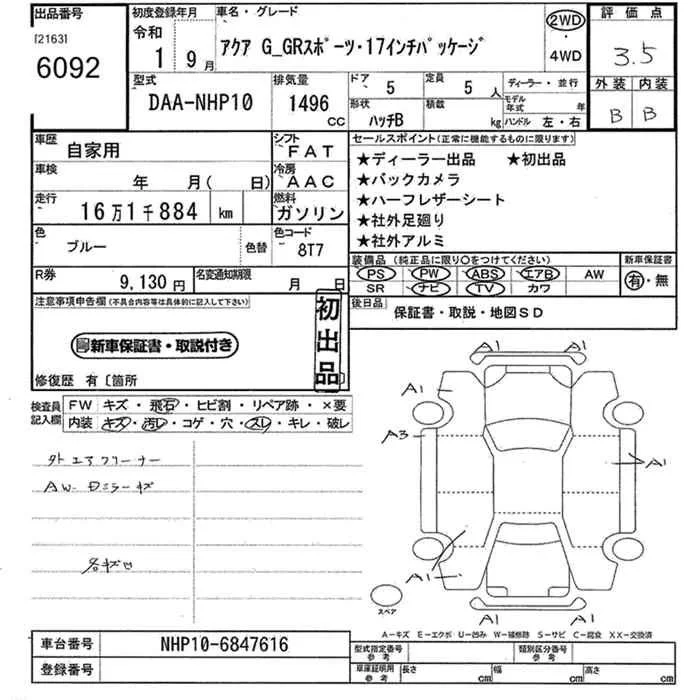 出品番号
[2163]
6092
初度登録年月
令和
1 9月
車名・グレード
アクア G_GRスポーツ・17インチパッケージ
2WD
・
4WD
評価点
3.5
外装 内装
B B
型式
DAA-NHP10
排気量
1496
CC
ドア 5
定員 5 人
ディーラー・並行
形状
ハッチB
積載
kg
モデル年式 年
ハンドル 左・右
車歴
自家用
シフト
FAT
車検
年 月( 日)
冷房
AAC
走行
16万1千884 km
燃料
ガソリン
色
ブルー
色替
色コード
8T7
R券
9,130円
名変通知期限
月 日
セールスポイント(正常に機能するものに限ります)
★ディーラー出品 ★初出品
★バックカメラ
★ハーフレザーシート
★社外足廻り
★社外アルミ
装備品 (純正品に限り○をつけてください)
PS PW ABS エアB AW
SR ナビ TV カワ
新車保証書
有・無
後日品
保証書・取説・地図SD
注意事項申告欄(不具合内容等は具体的に記入して下さい)
新車保証書・取説付き
初出品
修復歴 有〔箇所
検査員記入欄
FW キズ・飛石・ヒビ割・リペア跡・×要
内装 キズ・汚レ・コゲ・穴・スレ・キレ・破レ
外エアクリーナー
AW
A1 A1
A1
A3
A1
A1
A1 A1
スペア
A―キズ E―エクボ U―凹み W―補修跡 S―サビ C―腐食 XX―交換済
車台番号
NHP10-6847616
登録番号
型式指定番号
参考
類別区分番号
参考
車庫証明用
参考
長さ cm
幅 cm
高さ cm